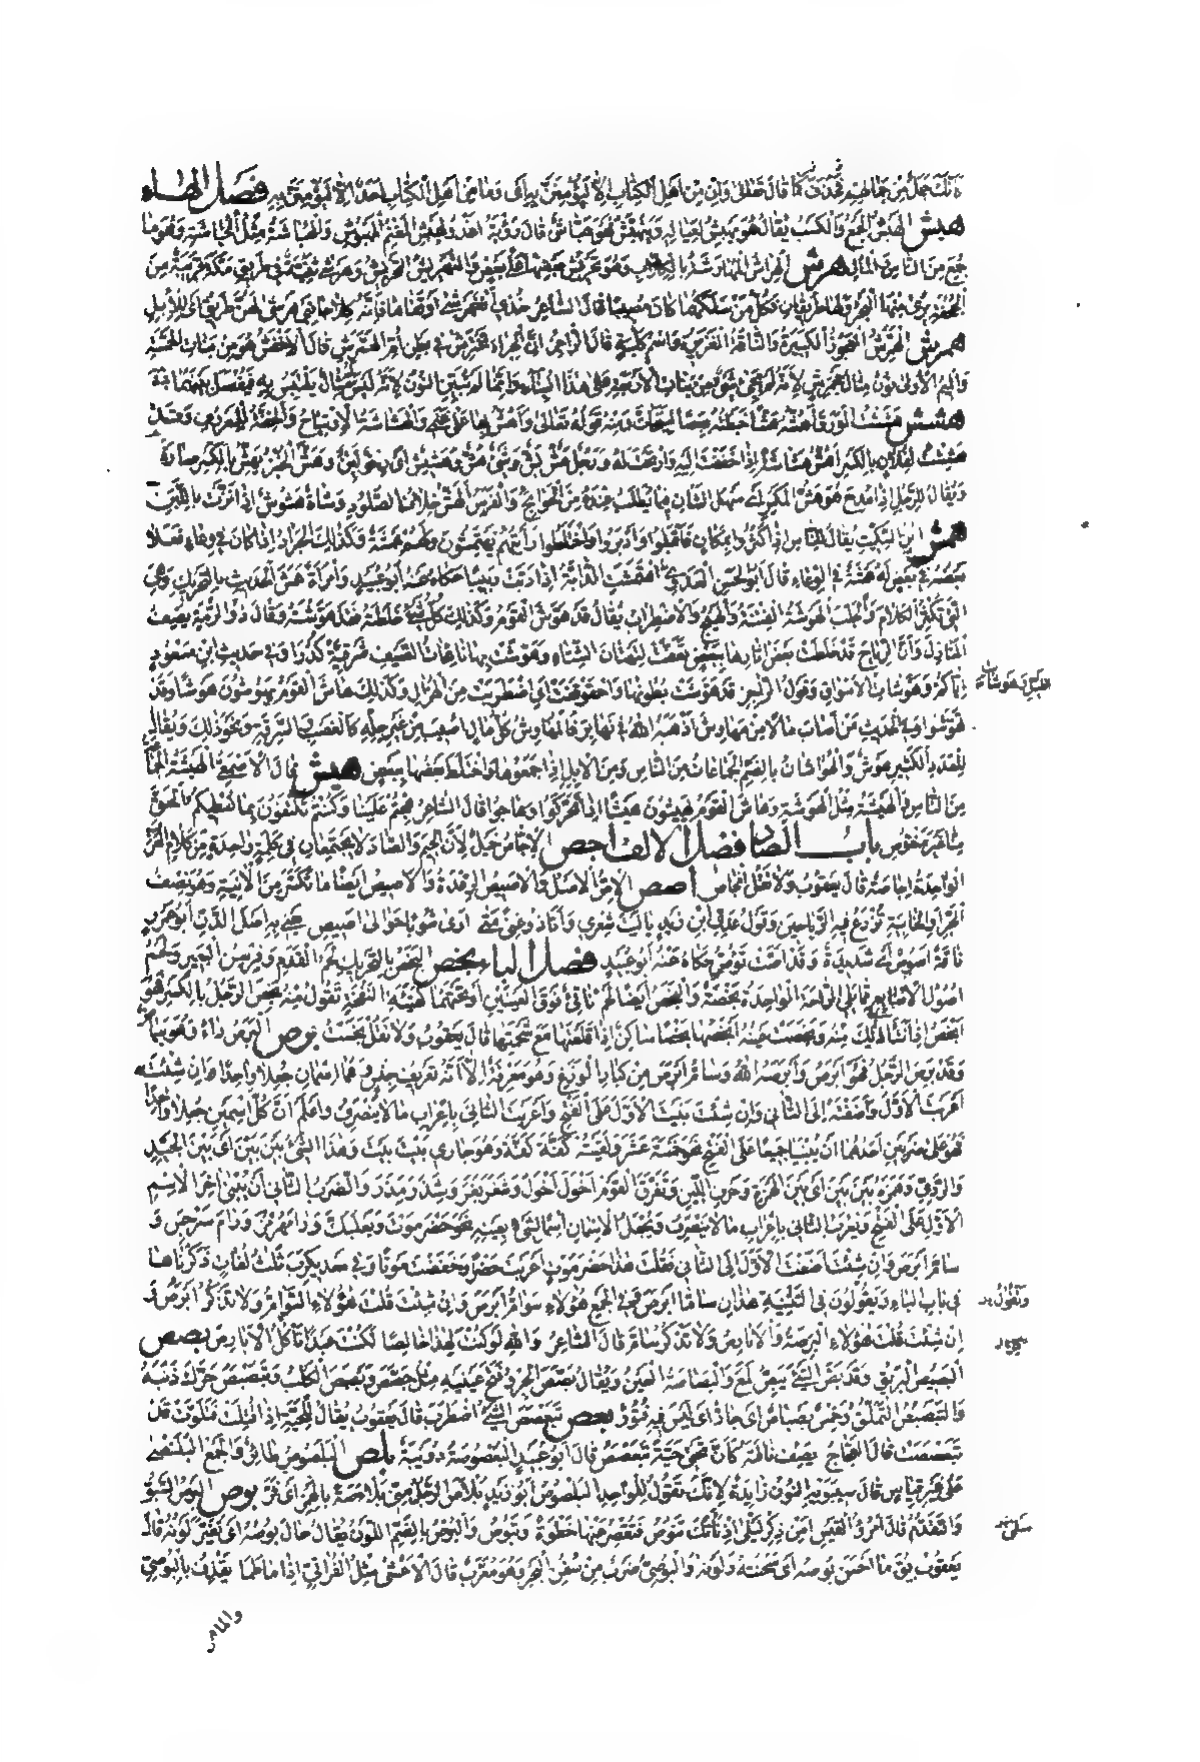 قال تعالى وان من اهل الكتاب الا ليؤمنن به اى وما من اهل الكتاب احد الا ليؤمنن به فصل الهاء
هبش الهبش الجمع والكسب يقال هو يهبش لعياله ويتهبش فهو هباش قال رؤبة والهباشة مثل الحباشة وهو ما
جمع من الناس والمال هرش الهراش المهارشة بالكلاب وهو تحريش بعضها على بعض والتهريش التحريش وهرشى ثنية فى طريق مكة قريبة من
الجحفة يرى منها البحر ولها طريقان فكل من سلكهما كان مصيبا قال الشاعر خذى انف هرشى او قفاها فانه كلا جانبى هرشى لهن طريق اى للابل
همرش الهمرش العجوز الكبيرة والناقة الغزيرة واسم كلبة قال الراجز ان الجراء تخترش فى بطن ام الهمرش قال الاخفش هو من بنات الخمسة
والميم الاولى نون مثال جحمرش لانه لم يجئ شىء من بنات الاربعة على هذا البناء وانما لم تبين النون لانه ليس له مثال يلتبس به فيفصل بينهما
هشش هششت الورق اهشه هشا خبطته بعصا ليتحات ومنه قوله تعالى واهش بها على غنمى والهشاشة الارتياح والخفة للمعروف وقد
هششت لفلان بالكسر اهش هشاشة اذا خففت اليه وارتحت له ورجل هش بش وشىء هش وهشيش اى رخو لين وهش الخبز يهش بالكسر صار
ويقال للرجل اذا مدح هو هش المكسر اى سهل الشان فيما يطلب عنده من الحوائج والفرس الهش خلاف الصلود وشاة هشوش اذا ثرت باللبن
همش ابن السكيت يقال للناس اذا كثروا بمكان فاقبلوا وادبروا واختلطوا رايتهم يهتمشون ولهم همشة وكذلك الجراد اذا كان فى وعاء فغلا
بعضه فى بعض له همشة فى الوعاء قال ابو الحسن العدوى اهتمشت الدابة اذا دبت دبيبا حكاه عنه ابو عبيد وامراة همشى الحديث بالتحريك وهى
التى تكثر الكلام وتجلب الهوشة الفتنة والهيج والاضطراب يقال قد هوش القوم وكذلك كل شىء خلطته فقد هوشته وقال ذو الرمة يصف
المنازل وان الرياح قد خلطت بعض اثارها ببعض تعفت لتهتان الشتاء وهوشت بها نائجات الصيف شرقية كدرا وفى حديث ابن مسعود
اياكم وهوشات الاسواق وقول الراجز قد هوشت بطونها واحقوقفت اى اضطربت من الهزال وكذلك هاش القوم يهوشون هوشا وقد
تهوشوا وفى الحديث من اصاب مالا من مهاوش اذهبه الله فى نهابر فالمهاوش كل مال اصيب من غير حله كالغصب والسرقة ونحو ذلك ويقال
للعدد الكثير هوش والهواشات بالضم الجماعات من الناس ومن الابل اذا جمعوها واختلط بعضها ببعض هيش قال الاصمعى الهيشة الجماعة
من الناس الهيشة مثل الهوشة وهاش القوم يهيشون هيشا اذا تحركوا وهاجوا قال الشاعر هجتم علينا وكنتم تكلفون بما نعطيكم الحق
منا غير منقوص باب الصاد فصل الالف اجص الاجاص دخيل لان الجيم والصاد لا يجتمعان فى كلمة واحدة من كلام العرب
الواحدة اجاصة قال يعقوب ولا تقل انجاص اصص الاص الاصل والاصيص الرعدة والاصيص ايضا ما تكسر من الآنية وهو نصف
الجر او الخابية تزرع فيه الرياحين وقول عدى بن زيد يا ليت شعرى وانا ذو غنى متى ارى شربا حوالى اصيص يعنى به اصل الدن ابو عمرو
ناقة اصوص اى شديدة وقد اصت تؤص حكاه عنه ابو عبيد فصل الباء بخص البخص بالتحريك لحم القدم وفرسن البعير ولحم
اصول الاصابع مما يلى الراحة الواحدة بخصة والبخص ايضا لحم ناتئ فوق العينين او تحتهما كهيئة النفخة تقول منه بخص الرجل بالكسر فهو
ابخص اذا نتا ذلك منه وبخصت عينه ابخصها بخصا ساكن اذا قلعتها مع شحمتها قال يعقوب ولا تقل بخست برص البرص داء وهو بياض
وقد برص الرجل فهو ابرص وابرصه الله وسام ابرص من كبار الوزغ وهو معرفة الا انه تعريف جنس وهما اسمان جعلا واحدا وان شئت
اعربت الاول واضفته الى الثانى وان شئت بنيت الاول على الفتح واعربت الثانى باعراب ما لا ينصرف واعلم ان كل اسمين جعلا واحدا
فهو على ضربين احدهما ان يبنيا جميعا على الفتح نحو خمسة عشر ولقيته كفة كفة وهو جارى بيت بيت وهذا الشىء بين بين اى بين الجيد
والردى وهمزة بين بين اى بين الهمزة وحرف اللين وتفرق القوم اخول اخول وشغر بغر وشذر مذر والضرب الثانى ان يبنى اخر الاسم
الاول على الفتح ويعرب الثانى باعراب ما لا ينصرف ويجعل الاسمان اسما لشىء بعينه نحو حضرموت وبعلبك ورامهرمز ومارسرجس و
سام ابرص فان شئت اضفت الاول الى الثانى فقلت هذا حضرموت اعربت حضرا وخفضت موتا وفى معديكرب ثلث لغات ذكرناها
فى باب الباء ويقولون فى التثنية هذان ساما ابرص وفى الجمع هؤلاء سوام ابرص وان شئت قلت هؤلاء السوام ولا تذكر ابرص و
ان شئت قلت هؤلاء البرصة والابارص ولا تذكر سام قال الشاعر والله لو كنت لهذا خالصا لكنت عبدا آكل الابارصا بصص
البصيص البريق وقد بص الشىء يبص لمع والبصاصة العين ويقال بصص الجرو فتح عينيه مثل جصص وبصبص الكلب وتبصبص حرك ذنبه
والتبصبص التملق وخمس بصباص اى جاد اى ليس فيه فتور بعص تبعصص الشىء اضطرب قال يعقوب يقال للحية اذا قتلت فتلوت قد
تبعصصت قال العجاج يصف ناقة كان تحتى حية تبعصص قال ابو عبيد البعصوصة دويبة بلص البلصوص طائر والجمع البلنصى
على غير قياس قال سيبويه النون زائدة لانك تقول للواحد البلصوص ابو زيد بلاص الرجل منى بلاصة بالهمز اى فر بوص البوص السبق
والتقدم قال امرؤ القيس امن ذكر ليلى اذ ناتك تنوص فتقصر عنها خطوة وتبوص والبوص بالضم اللون يقال حال بوصه اى تغير لونه قال
يعقوب يقال ما احسن بوصه اى سحنته ولونه والبوصى ضرب من سفن البحر وهو معرب قال الاعشى مثل الفراتى اذا ما طما يقذف بالبوصى
والماهر